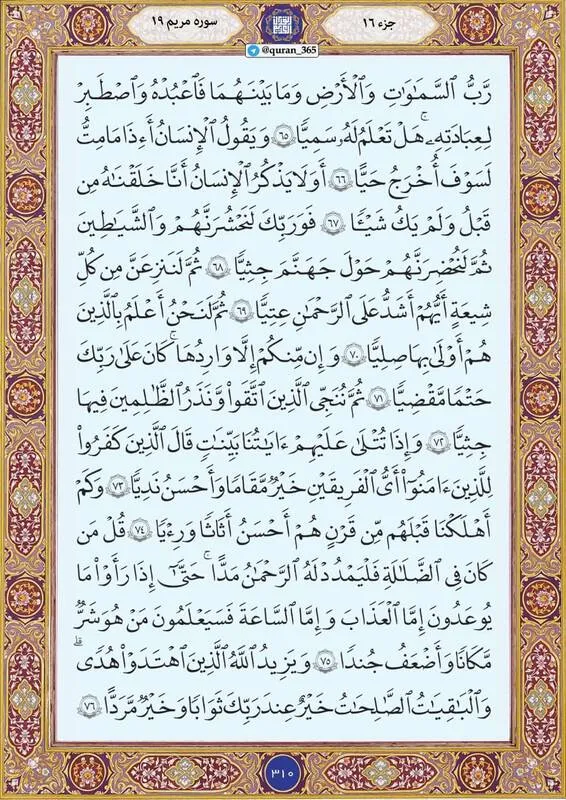 جزء ۱۶
سوره مریم ۱۹
@quran_365
رَّبُّ السَّمَاوَاتِ وَالْأَرْضِ وَمَا بَيْنَهُمَا فَاعْبُدْهُ وَاصْطَبِرْ
لِعِبَادَتِهِۦ ۚ هَلْ تَعْلَمُ لَهُۥ سَمِيًّا ﴿٦٥﴾ وَيَقُولُ الْإِنسَانُ أَءِذَا مَا مِتُّ
لَسَوْفَ أُخْرَجُ حَيًّا ﴿٦٦﴾ أَوَلَا يَذْكُرُ الْإِنسَانُ أَنَّا خَلَقْنَاهُ مِن
قَبْلُ وَلَمْ يَكُ شَيْـًٔا ﴿٦٧﴾ فَوَرَبِّكَ لَنَحْشُرَنَّهُمْ وَالشَّيَاطِينَ
ثُمَّ لَنُحْضِرَنَّهُمْ حَوْلَ جَهَنَّمَ جِثِيًّا ﴿٦٨﴾ ثُمَّ لَنَنزِعَنَّ مِن كُلِّ
شِيعَةٍ أَيُّهُمْ أَشَدُّ عَلَى الرَّحْمَٰنِ عِتِيًّا ﴿٦٩﴾ ثُمَّ لَنَحْنُ أَعْلَمُ بِالَّذِينَ
هُمْ أَوْلَىٰ بِهَا صِلِيًّا ﴿٧٠﴾ وَإِن مِّنكُمْ إِلَّا وَارِدُهَا ۚ كَانَ عَلَىٰ رَبِّكَ
حَتْمًا مَّقْضِيًّا ﴿٧١﴾ ثُمَّ نُنَجِّي الَّذِينَ اتَّقَوا وَّنَذَرُ الظَّالِمِينَ فِيهَا
جِثِيًّا ﴿٧٢﴾ وَإِذَا تُتْلَىٰ عَلَيْهِمْ ءَايَاتُنَا بَيِّنَاتٍ قَالَ الَّذِينَ كَفَرُوا
لِلَّذِينَ ءَامَنُوٓا أَيُّ الْفَرِيقَيْنِ خَيْرٌ مَّقَامًا وَأَحْسَنُ نَدِيًّا ﴿٧٣﴾ وَكَمْ
أَهْلَكْنَا قَبْلَهُم مِّن قَرْنٍ هُمْ أَحْسَنُ أَثَاثًا وَرِءْيًا ﴿٧٤﴾ قُلْ مَن
كَانَ فِي الضَّلَالَةِ فَلْيَمْدُدْ لَهُ الرَّحْمَٰنُ مَدًّا ۚ حَتَّىٰٓ إِذَا رَأَوْا مَا
يُوعَدُونَ إِمَّا الْعَذَابَ وَإِمَّا السَّاعَةَ فَسَيَعْلَمُونَ مَنْ هُوَ شَرٌّ
مَّكَانًا وَأَضْعَفُ جُندًا ﴿٧٥﴾ وَيَزِيدُ اللَّهُ الَّذِينَ اهْتَدَوْا هُدًى ۗ
وَالْبَاقِيَاتُ الصَّالِحَاتُ خَيْرٌ عِندَ رَبِّكَ ثَوَابًا وَخَيْرٌ مَّرَدًّا ﴿٧٦﴾
۳۱۰